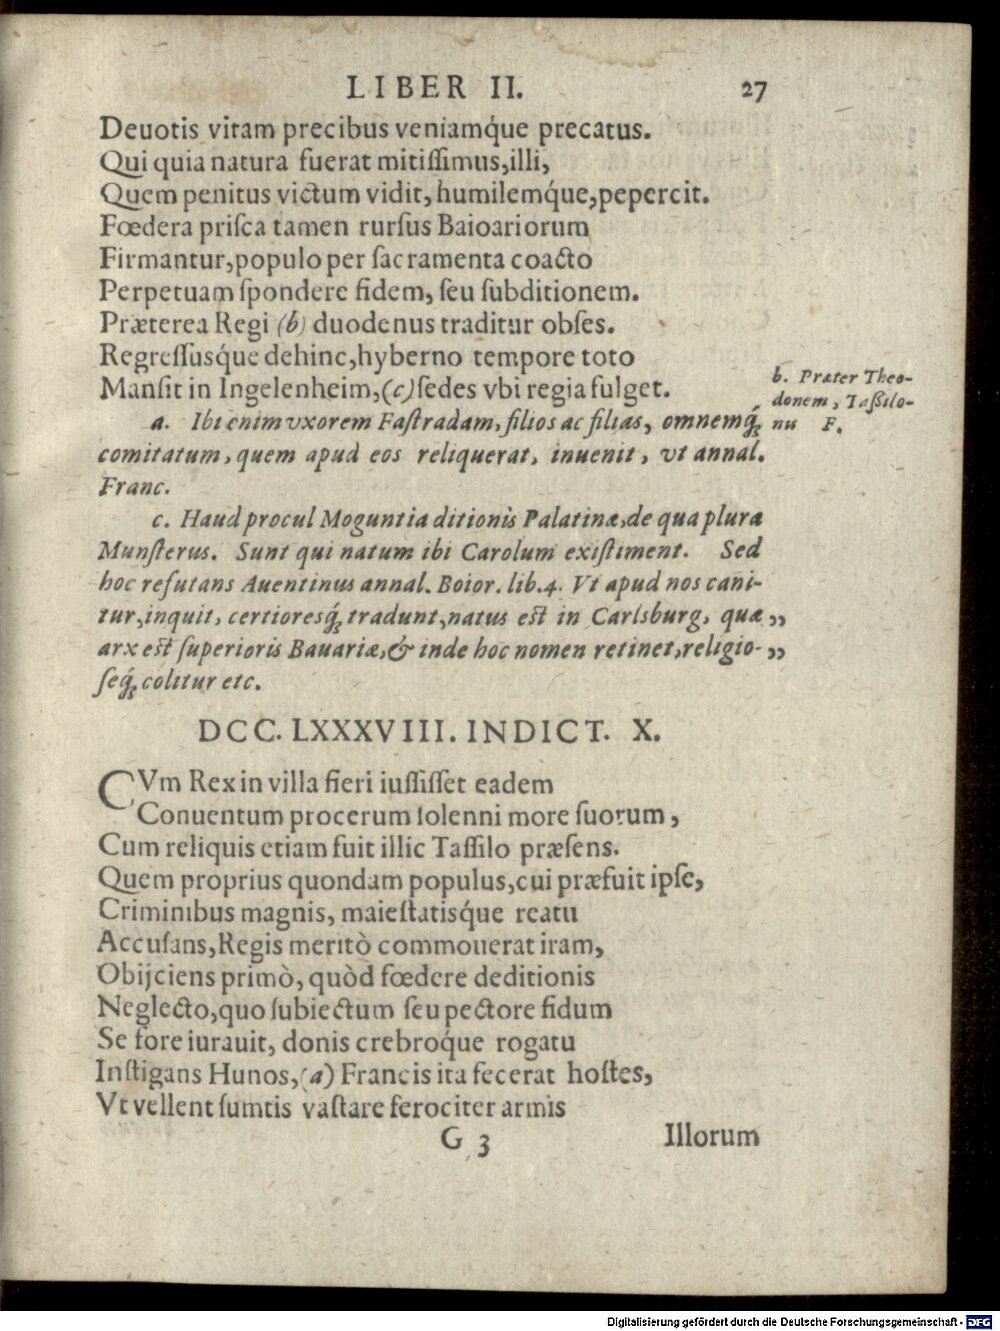 LIBER II. 27
Deuotis vitam precibus veniamq́ue precatus.
Qui quia natura fuerat mitiſſimus, illi,
Quem penitus victum vidit, humilemq́ue, pepercit.
Fœdera priſca tamen rurſus Baioariorum
Firmantur, populo per ſacramenta coacto
Perpetuam ſpondere fidem, ſeu ſubditionem.
Præterea Regi (b) duodenus traditur obſes.
Regreſſusq́ue dehinc, hyberno tempore toto
Manſit in Ingelenheim, (c) ſedes vbi regia fulget.
b. Præter Theo-
donem, Taßilo-
nu F.
a. Ibi enim vxorem Faſtradam, filios ac filias, omnemq́;
comitatum, quem apud eos reliquerat, inuenit, vt annal.
Franc.
c. Haud procul Moguntia ditionis Palatinæ, de qua plura
Munſterus. Sunt qui natum ibi Carolum exiſtiment. Sed
hoc refutans Auentinus annal. Boior. lib. 4. Vt apud nos cani-
tur, inquit, certioresq́; tradunt, natus eſt in Carlsburg, quæ „
arx eſt ſuperioris Bauariæ, & inde hoc nomen retinet, religio- „
ſeq́; colitur etc.
DCC. LXXXVIII. INDICT. X.
CVm Rex in villa fieri iuſſiſſet eadem
Conuentum procerum ſolenni more ſuorum,
Cum reliquis etiam fuit illic Taſſilo præſens.
Quem proprius quondam populus, cui præfuit ipſe,
Criminibus magnis, maieſtatisq́ue reatu
Accuſans, Regis meritò commouerat iram,
Obijciens primò, quòd fœdere deditionis
Neglecto, quo ſubiectum ſeu pectore fidum
Se fore iurauit, donis crebroq́ue rogatu
Inſtigans Hunos, (a) Francis ita fecerat hoſtes,
Vt vellent ſumtis vaſtare ferociter armis
G 3 Illorum
Digitalisierung gefördert durch die Deutsche Forschungsgemeinschaft - DFG